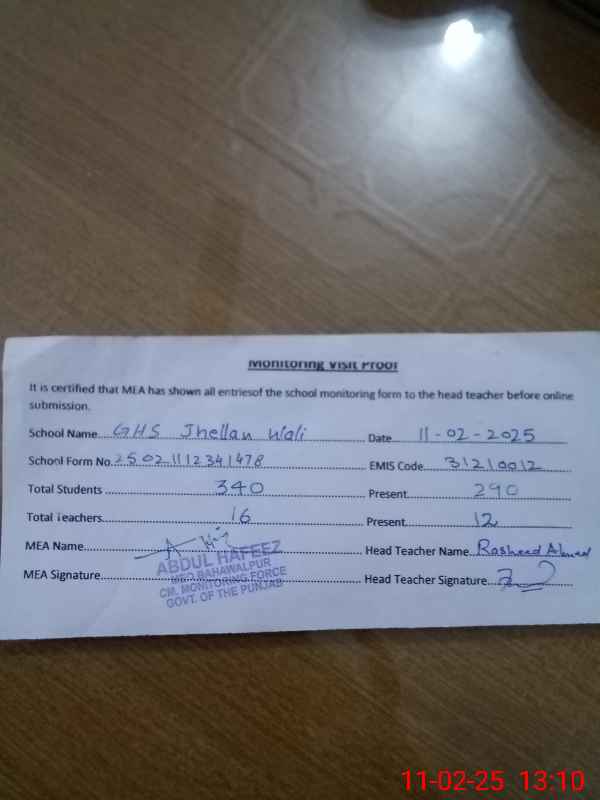 Monitoring Visit Proof
It is certified that MEA has shown all entriesof the school monitoring form to the head teacher before online
submission.
School Name GHS Jhellan Wali Date 11-02-2025
School Form No. 25021112341478 EMIS Code 31210012
Total Students 340 Present 290
Total Teachers 16 Present 12
MEA Name Head Teacher Name Rasheed Ahmad
ABDUL HAFEEZ
MEA Signature Head Teacher Signature
MEO BAHAWALPUR
CM. MONITORING FORCE
GOVT. OF THE PUNJAB
11-02-25 13:10